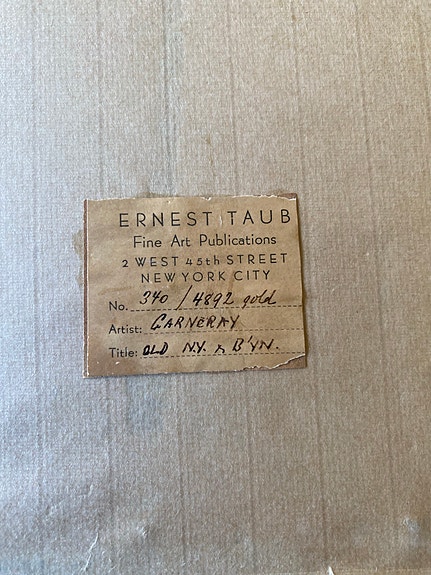 ERNEST TAUB
Fine Art Publications
2 WEST 45th STREET
NEW YORK CITY
No. 340 / 4892 gold
Artist: GARNERAY
Title: OLD N.Y. & B'YN.